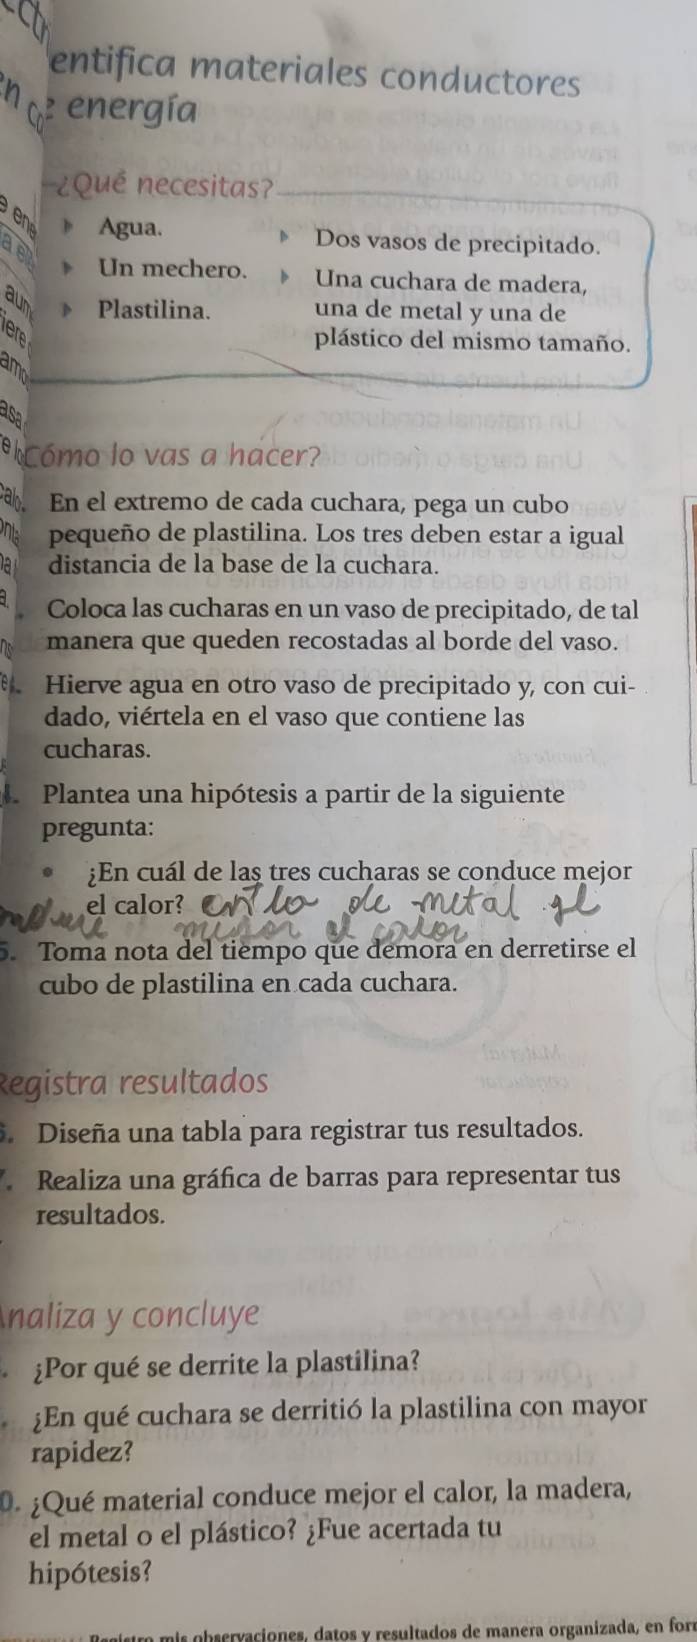 entifica materiales conductores
e energía
¿Qué necesitas?
Agua.
Un mechero.
Plastilina.
Dos vasos de precipitado.
Una cuchara de madera,
una de metal y una de
plástico del mismo tamaño.
Cómo lo vas a hacer?
En el extremo de cada cuchara, pega un cubo
pequeño de plastilina. Los tres deben estar a igual
distancia de la base de la cuchara.
Coloca las cucharas en un vaso de precipitado, de tal
manera que queden recostadas al borde del vaso.
Hierve agua en otro vaso de precipitado y, con cui-
dado, viértela en el vaso que contiene las
cucharas.
Plantea una hipótesis a partir de la siguiente
pregunta:
• ¿En cuál de las tres cucharas se conduce mejor
el calor? en la de metal
el calor
5. Toma nota del tiempo que demora en derretirse el
cubo de plastilina en cada cuchara.
Registra resultados
6. Diseña una tabla para registrar tus resultados.
7. Realiza una gráfica de barras para representar tus
resultados.
Analiza y concluye
¿Por qué se derrite la plastilina?
¿En qué cuchara se derritió la plastilina con mayor
rapidez?
0. ¿Qué material conduce mejor el calor, la madera,
el metal o el plástico? ¿Fue acertada tu
hipótesis?
Registro mis observaciones, datos y resultados de manera organizada, en for